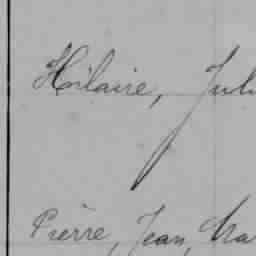 Hilaire, Juli
Pierre, Jean, Ma